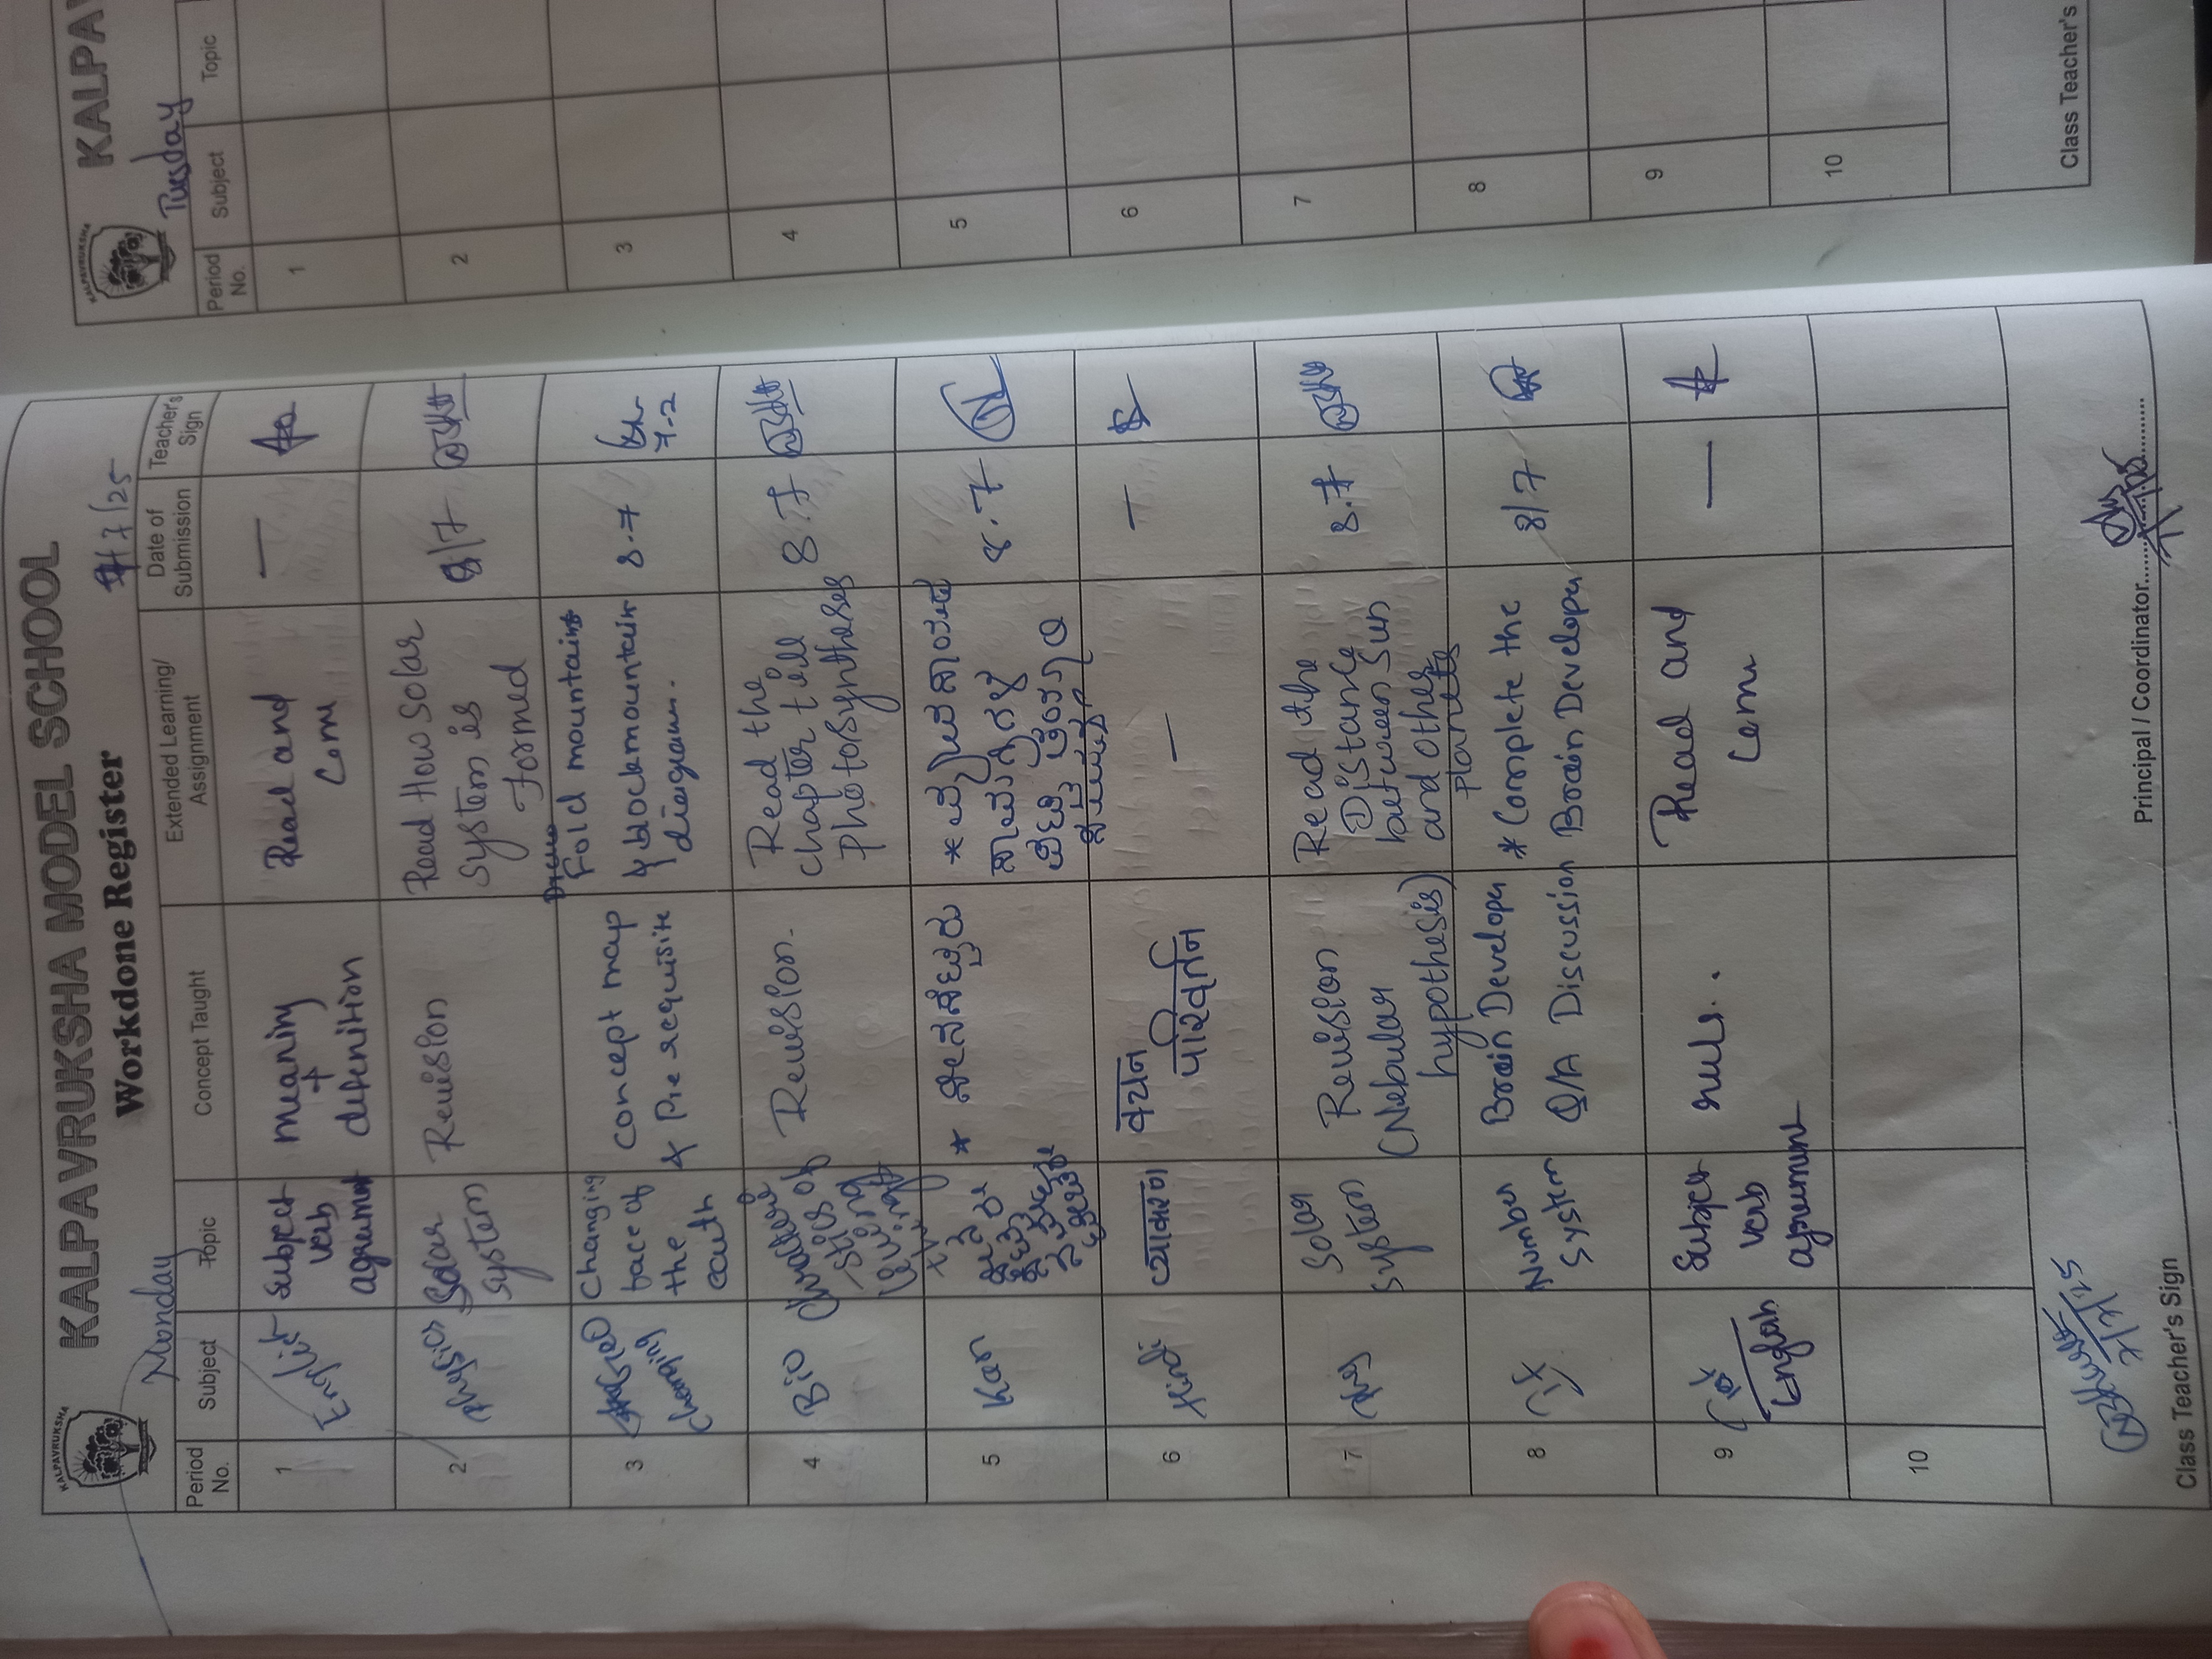 KALPAVRUKSHA
KALPAVRUKSHA MODEL SCHOOL
Workdone Register
Monday
7/7/25
Period No.
Subject
Topic
Concept Taught
Extended Learning/ Assignment
Date of Submission
Teacher's Sign
1
English
Subject
verb
agreement
meaning
+
defenition
Read and
Lern
—
2
Physics
Solar
system
Revision
Read How Solar
System is
Formed
8/7
3
Changing
face of
the
earth
concept map
& Pre requisite
Draw
Fold mountains
& block mountain
diagram.
8-7
4
Bio
Revision.
Read the
chapter till
photosyntheses
8.7
5
Kan
*
*
8.7
6
Hindi
व्याकरण
वचन
परिवर्तन
—
—
7
Phy
Solar
system
Revision
(Nebular
hypothesis)
Read the
Distance
between Sun
and other
planets
8.7
8
Number
System
Brain Developer
Q/A Discussion
* Complete the
Brain Developer
8/7
9
English
Subject
verb
agreement
rules..
Read and
Lern
—
10
Class Teacher's Sign
7/7/25
Principal / Coordinator
KALPAVRUKSHA
KALPAV
Tuesday
Period No.
Subject
Topic
1
2
3
4
5
6
7
8
9
10
Class Teacher's